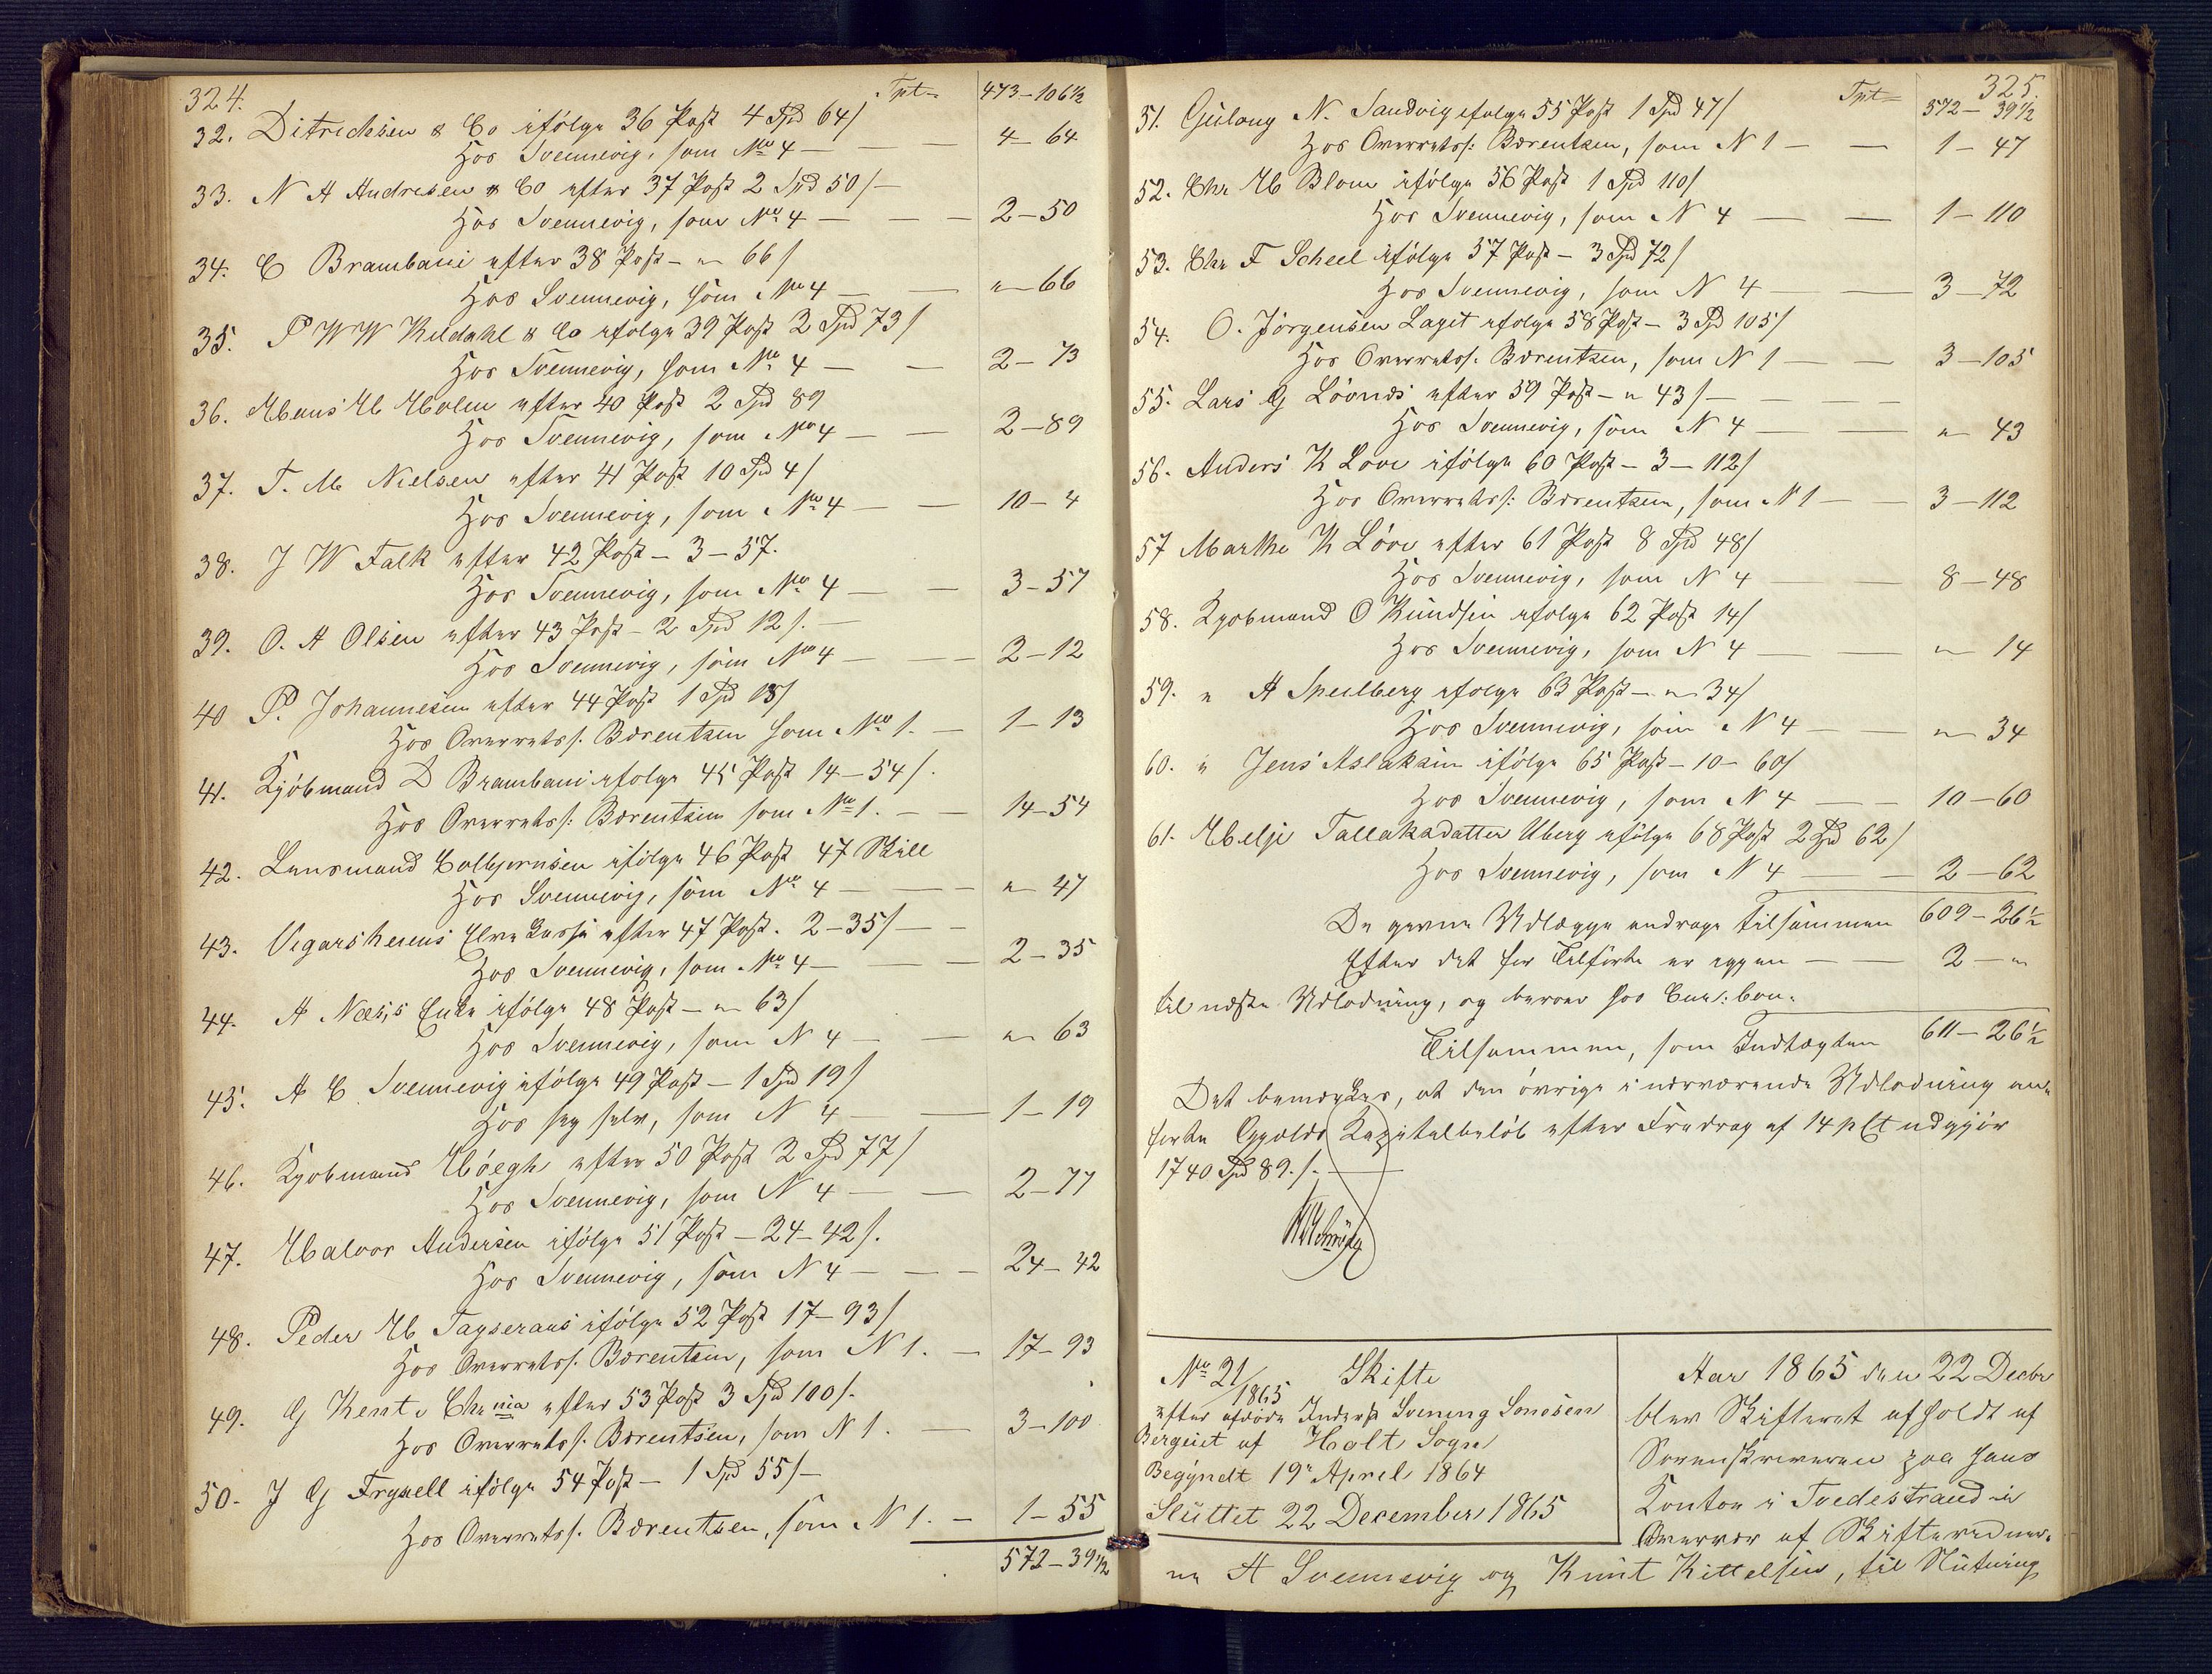 324.
Tpt= 473–106½
32. Ditrichsen & Co ifölge 36 Post 4 Spd 64/
Hos Svennevig, som No 4 — — — 4–64
33. N A Andresen & Co efter 37 Post 2 Spd 50/–
Hos Svennevig, som No 4 — — — 2–50
34. C Brambani efter 38 Post – „ 66/
Hos Svennevig, som No 4 — — „–66
35. P W W Kildahl & Co ifölge 39 Post 2 Spd 73/
Hos Svennevig, som No 4 — — 2–73
36. Hans H Holm efter 40 Post 2 Spd 89
Hos Svennevig, som No 4 — — 2–89
37. T. M. Nielsen efter 41 Post 10 Spd 4/
Hos Svennevig, som No 4 — — 10–4
38. J W Falk efter 42 Post – 3–57.
Hos Svennevig, som No 4 — — 3–57
39. O. A Olsen efter 43 Post – 2 Spd 12/. –
Hos Svennevig, som No 4 — — 2–12
40 P. Johannesen efter 44 Post 1 Spd 13/
Hos Overretss. Bærentzen som No 1. — 1–13
41. Kjöbmand D Brambani ifölge 45 Post 14–54/.
Hos Overretss: Bærentzen som No 1. — — 14–54
42. Lensmand Colbjørnsen ifölge 46 Post 47 Skill
Hos Svennevig, som No 4 — — — „ 47
43. Vegarsheiens Elve Kasse efter 47 Post. 2–35/ — —
Hos Svennevig, som No 4 — — — 2–35
44. A Næs's Enke ifölge 48 Post – „ 63/
Hos Svennevig, som N 4 — — „ 63
45. A C Svennevig ifölge 49 Post – 1 Spd 19/
Hos sig selv, som N 4 — — 1–19
46. Kjöbmand Höegh efter 50 Post 2 Spd 77/
Hos Svennevig, som N 4 — — 2–77
47. Halvor Andersen ifölge 51 Post – 24–42/.
Hos Svennevig, som N 4 — — — 24–42
48. Peder H ifölge 52 Post 17–93/
Hos Overretss. Bærentzen, som N 1. — 17–93
49. G Kent i Chrnia efter 53 Post 3 Spd 100/.
Hos Overretss. Bærentsen, som N 1. — 3–100
50. J G ifölge 54 Post – 1 Spd 55/–
Hos Overretss. Bærentsen, som N 1. — 1–55
572–39½
325.
Tpt= 572–39½
51. N. Sandvig ifolge 55 Post 1 Spd 47/
Hos Overretss: Bærentzen, som N 1 — — 1–47
52. Chr H Blom ifölge 56 Post 1 Spd 110/
Hos Svennevig, som N 4 — — 1–110
53. Chr F Scheel ifölge 57 Post – 3 Spd 72/
Hos Svennevig, som N 4 — — 3–72
54. O. Jörgensen Laget ifolge 58 Post – 3 Spd 105/
Hos Overretss. Bærentzen, som N 1 — — 3–105
55. Lars G efter 59 Post – „ 43/ — — — —
Hos Svennevig, som N 4 — — „ 43
56. Anders K Love ifölge 60 Post – 3–112/
Hos Overretss: Bærentzen, som N 1 — 3–112
57 Marthe K Löve efter 61 Post 8 Spd 48/
Hos Svennevig, som N 4 — — 8–48
58. Kjobmand O Knudsen ifolge 62 Post 14/
Hos Svennevig, som N 4 — — „ 14
59. „ A Speilberg ifolge 63 Post – „ 34/
Hos Svennevig, som N 4 — — „ 34
60. „ Jens Aslaksen ifölge 65 Post – 10–60/
Hos Svennevig, som N 4 — — 10–60
61. Helje Tallaksdatter Uberg ifölge 68 Post 2 Spd 62/
Hos Svennevig, som N 4 — — 2–62
De gjorte Udlægge andrage tilsammen 609–26½
Efter det før Tilførte er igjen — — 2–„
til næste Udlodning, og beroer hos Cur: bon.
Tilsammen, som Indtægten 611–26½
Det bemærkes, at den övrige i nærværende Udlodning an=
førte Gjælds Kapitalbeløb efter Fradrag af 14 pCt udgjör
1740 Spd 89./. —
No 21/1865 Skifte
efter afdöde Inderst Svenning Simonsen
Bergeiet af Holt Sogn
Begyndt 19 April 1864
Sluttet 22 December 1865
Aar 1865 den 22 Decbr
blev Skifteret afholdt af
Sorenskriveren paa hans
Kontor i Tvedestrand i
Overvær af Skiftevidner=
ne A Svennevig og Knut Kittelsen, til Slutning